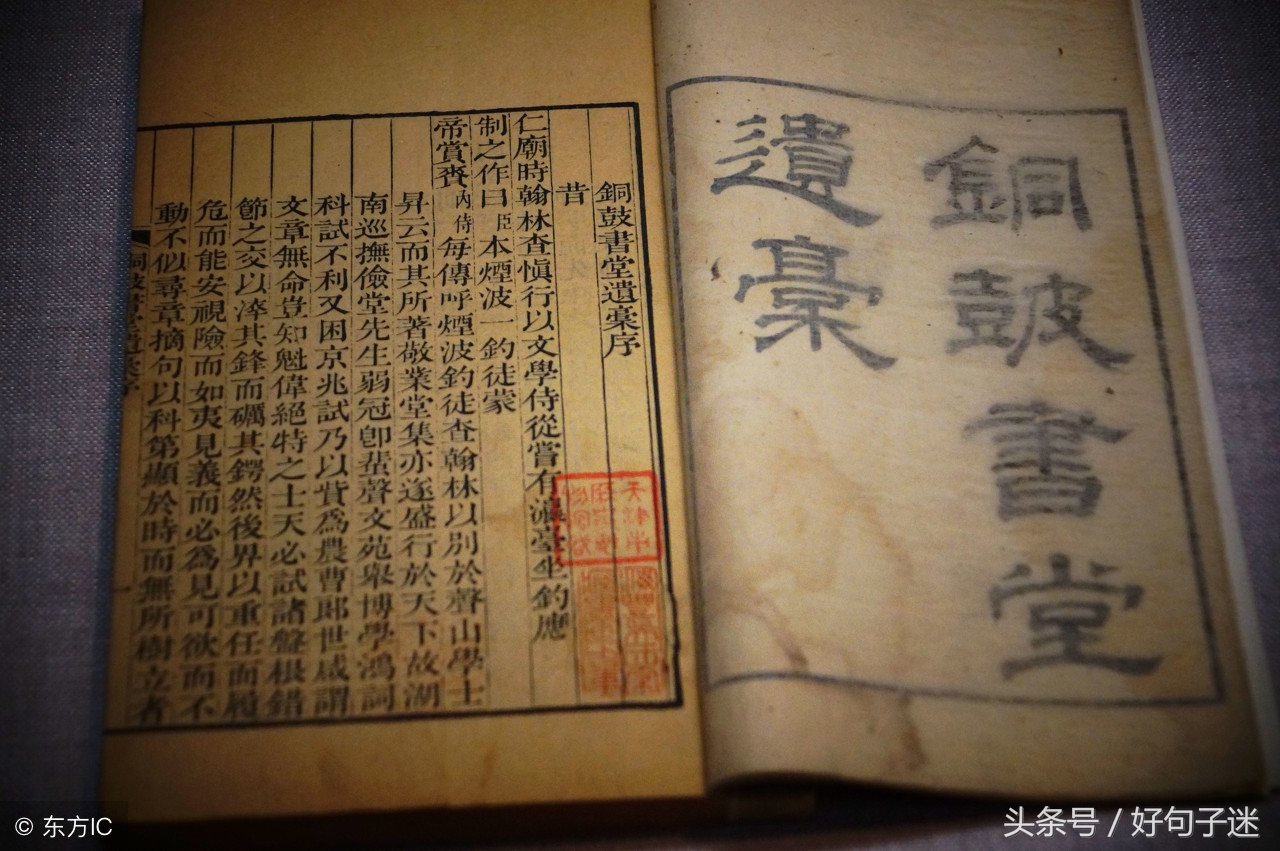 銅鼓書堂
遺稾
銅鼓書堂遺稾序
昔
仁廟時翰林查慎行以文學侍從嘗有瀛臺坐釣應
制之作曰臣本煙波一釣徒蒙
帝賞賚內侍每傳呼煙波釣徒查翰林以別於聲山學士
昇云而其所著敬業堂集亦遂盛行於天下故湖
南巡撫儉堂先生弱冠卽蜚聲文苑舉博學鴻詞
科試不利又困京兆試乃以貲爲農曹郞世咸謂
文章無命豈知魁偉絕特之士天必試諸盤根錯
節之交以淬其鋒而礪其鍔然後界以重任而履
危而能安視險而如夷見義而必爲見可欲而不
動不似尋章摘句以科第顯於時而無所樹立者
銅鼓書堂遺稾序
一
© 东方IC
头条号 / 好句子迷